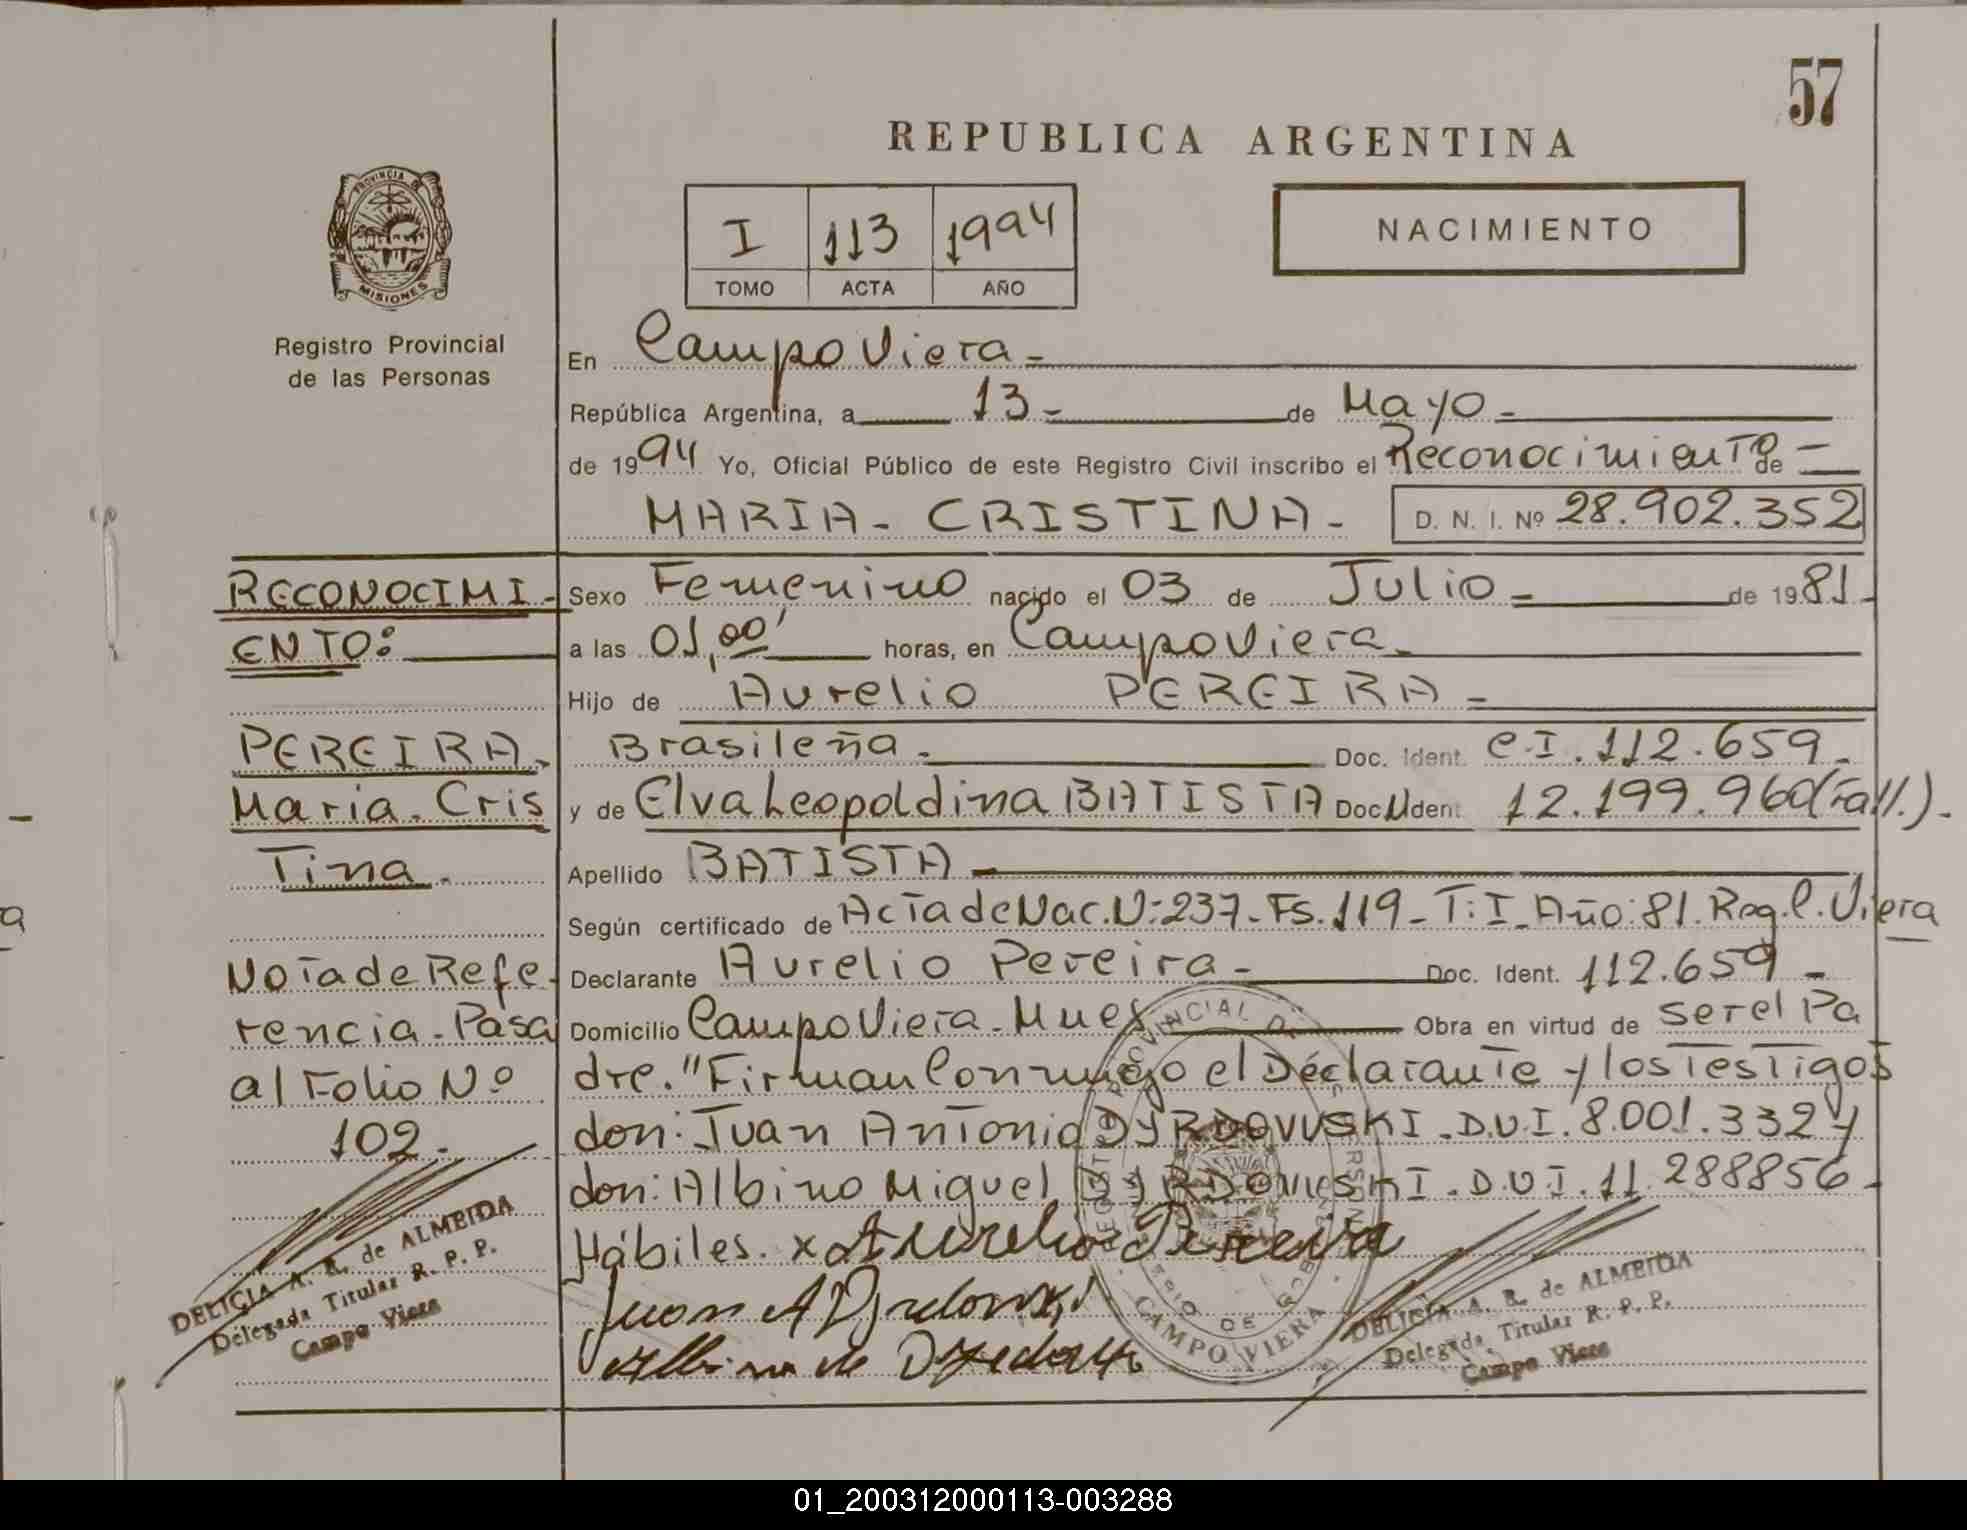 57
REPUBLICA ARGENTINA
I 113 1994
TOMO ACTA AÑO
NACIMIENTO
PROVINCIA DE
MISIONES
Registro Provincial
de las Personas
En Campo Viera -
República Argentina, a 13 - de Mayo -
de 1994 Yo, Oficial Público de este Registro Civil inscribo el Reconocimiento de -
MARIA - CRISTINA - D. N. I. Nº 28.902.352
Sexo Femenino nacido el 03 de Julio - de 1981 -
a las 01,00' horas, en Campo Viera -
Hijo de Aurelio PEREIRA -
Brasileña - Doc. Ident. C.I. 112.659 -
y de Elva Leopoldina BATISTA Doc. Ident 12.199.960 (Fall.) -
Apellido BATISTA -
Según certificado de Acta de Nac. N: 237 - Fs. 119 - T: I - Año: 81. Reg. C. Viera
Declarante Aurelio Pereira - Doc. Ident. 112.659 -
Domicilio Campo Viera - Mnes Obra en virtud de ser el Pa
dre. "Firman Conmigo el Declarante y los Testigos
don: Juan Antonio DYRDOWSKI - D.N.I. 8.001.332 y
don: Albino Miguel DYRDOWSKI - D.N.I. 11.288856 -
Hábiles. x Aurelio Pereira
Juan A
RECONOCIMI -
ENTO:
PEREIRA,
Maria - Cris
Tina -
Nota de Refe -
rencia - Pasa
al Folio Nº
102 -
DELICIA A. R. de ALMEIDA
Delegada Titular R. P. P.
Campo Viera
REGISTRO PROVINCIAL DE
CAMPO VIERA
DELICIA A. R. de ALMEIDA
Delegada Titular R. P. P.
Campo Viera
01_200312000113-003288